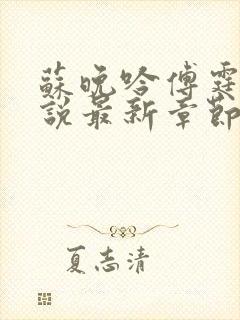 蘇晚吟傅霆
說最新章節
夏志清